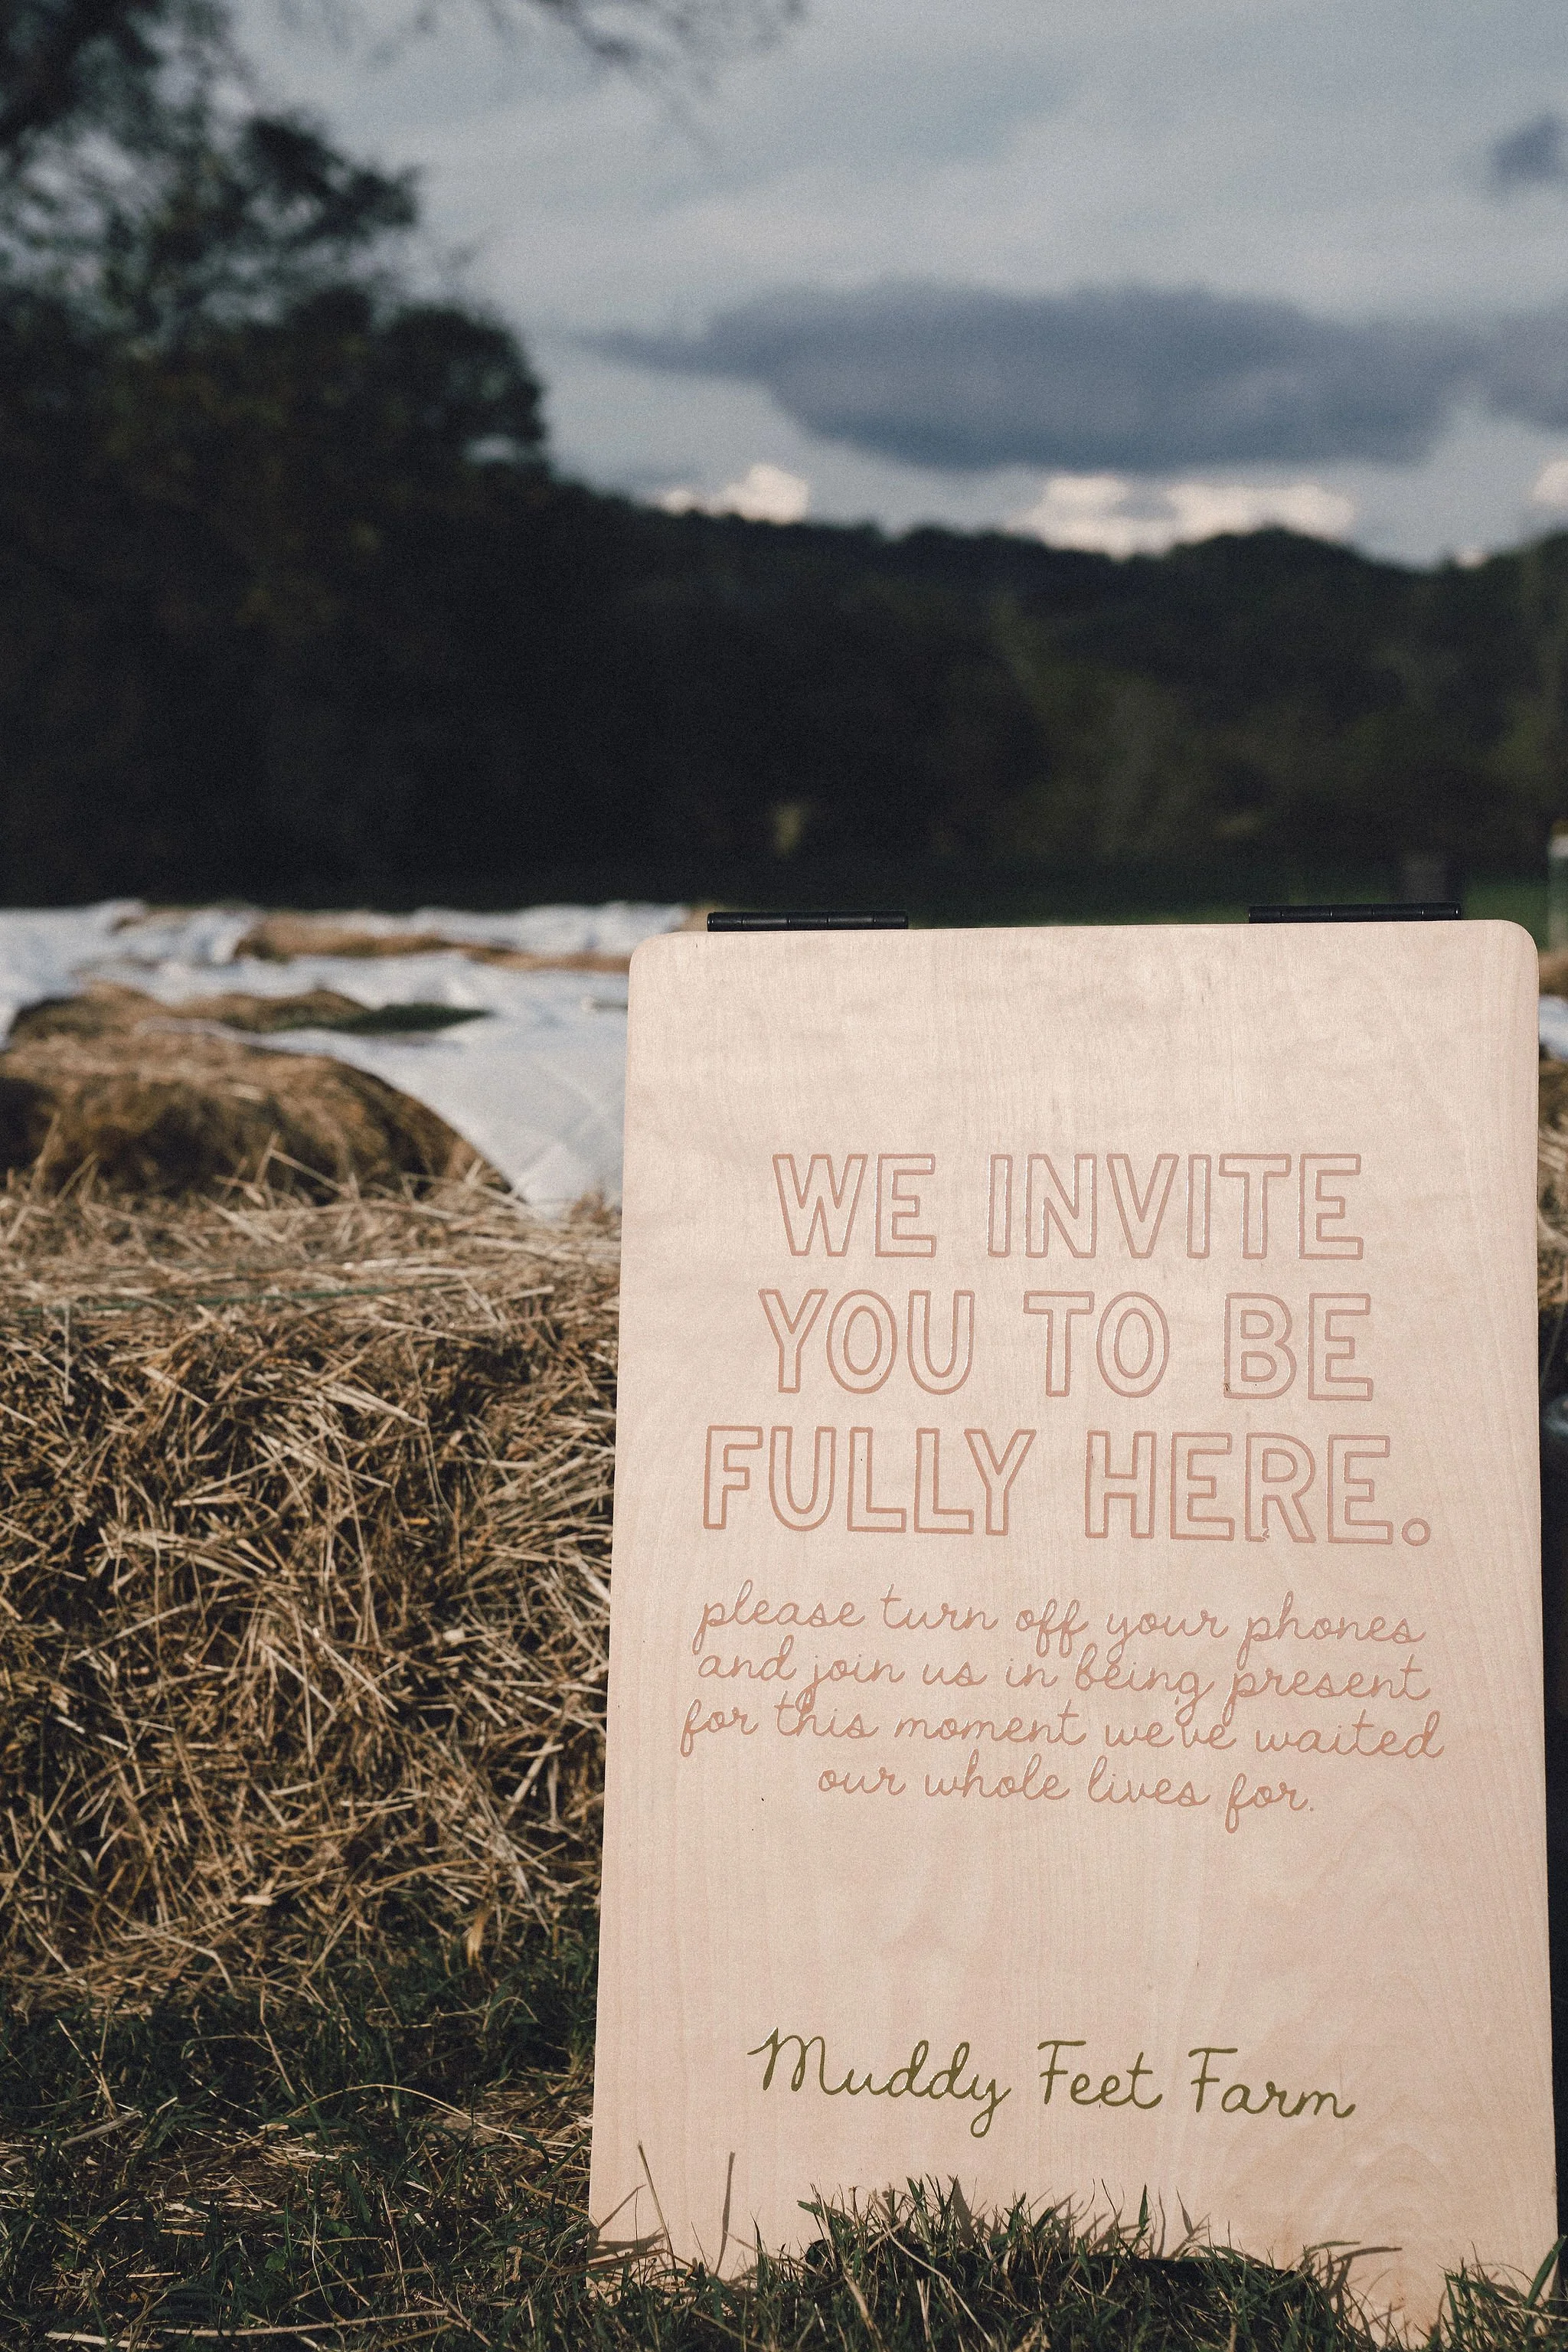 WE INVITE
YOU TO BE
FULLY HERE.
please turn off your phones
and join us in being present
for this moment we've waited
our whole lives for.
Muddy Feet Farm